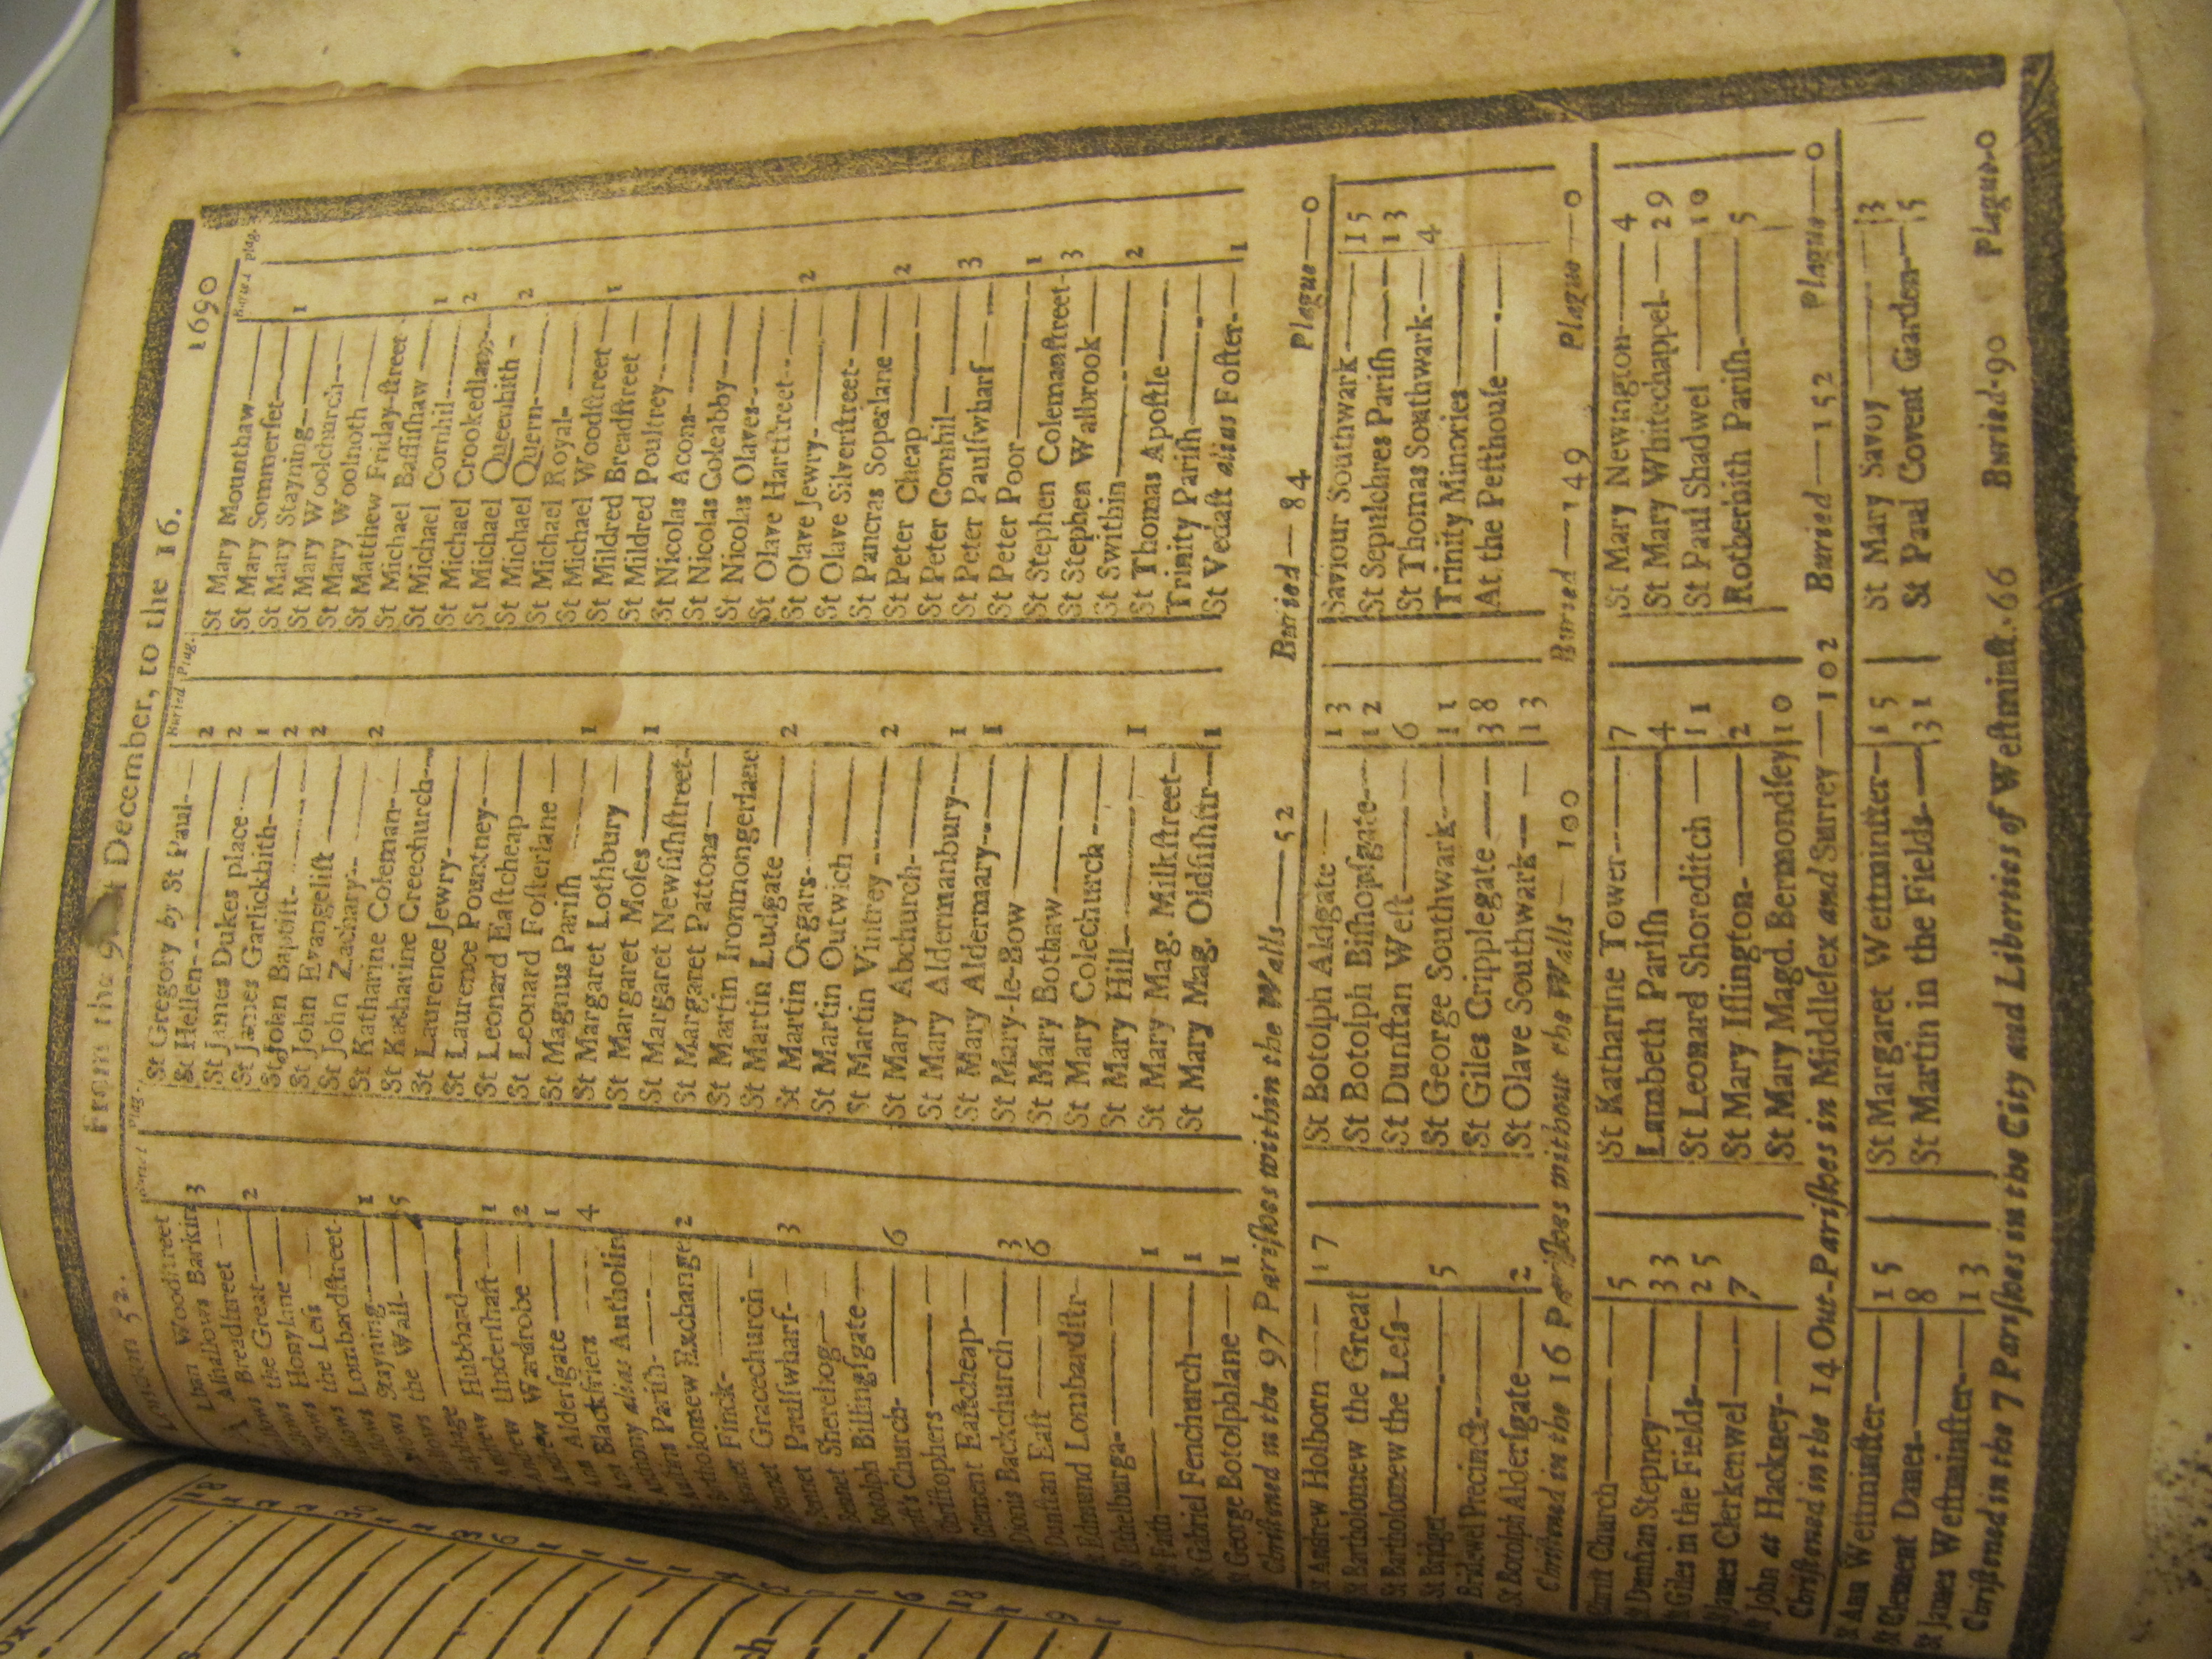 London 52. From the 9 December, to the 16. 1690
Buried Plag. Buried Plag.
Woodstreet
Alhallows Barking 3
Breadstreet
the Great 2
Honylane
the Less
Lombardstreet
Stayning 1
the Wall 5
Hubbard
Andrew Undershaft 1
Andrew Wardrobe 2
Aldersgate 1
Ann Blackfriers 4
Antony alias Antholin
Austins Parish
Bartholomew Exchange 2
Bennet Finck
Bennet Gracechurch
Bennet Paulswharf 3
Bennet Sherehog
Botolph Billingsgate
Christs Church 6
Christophers
Clement Eastcheap
Dionis Backchurch 3
Dunstan East 6
St Edmund Lombardstr
St Ethelburga
St Faith 1
St Gabriel Fenchurch 1
St George Botolphlane 1
St Gregory by St Paul
St Hellen 2
St James Dukes place 2
St James Garlickhith 1
St John Baptist 2
St John Evangelist 2
St John Zachary
St Katharine Coleman 2
St Katharine Creechurch
St Laurence Jewry
St Laurence Pountney
St Leonard Eastcheap
St Leonard Fosterlane
St Magnus Parish
St Margaret Lothbury 1
St Margaret Moses
St Margaret Newfishstreet 1
St Margaret Pattons
St Martin Ironmongerlane
St Martin Ludgate
St Martin Orgars 2
St Martin Outwich
St Martin Vintrey
St Mary Abchurch 2
St Mary Aldermanbury
St Mary Aldermary 1
St Mary-le-Bow 1
St Mary Bothaw
St Mary Colechurch
St Mary Hill
St Mary Mag. Milkstreet 1
St Mary Mag. Oldfishstr 1
St Mary Mounthaw
St Mary Sommerset
St Mary Stayning 1
St Mary Woolchurch
St Mary Woolnoth
St Matthew Friday-street
St Michael Bassishaw
St Michael Cornhil 1
St Michael Crookedlane 2
St Michael Queenhith
St Michael Quern 2
St Michael Royal
St Michael Woodstreet
St Mildred Breadstreet 1
St Mildred Poultrey
St Nicolas Acons
St Nicolas Coleabby
St Nicolas Olaves
St Olave Hartstreet
St Olave Jewry 2
St Olave Silverstreet
St Pancras Soperlane
St Peter Cheap 2
St Peter Cornhil
St Peter Paulswharf 3
St Peter Poor
St Stephen Colemanstreet 1
St Stephen Walbrook 3
St Swithin
St Thomas Apostle 2
Trinity Parish
St Vedast alias Foster 1
Christned in the 97 Parishes within the Walls 52 Buried 84 Plague 0
St Andrew Holborn 17
St Bartholomew the Great
St Bartholomew the Less
St Bridget 5
Bridewel Precinct
St Botolph Aldersgate 2
St Botolph Aldgate 13
St Botolph Bishopsgate 12
St Dunstan West 6
St George Southwark 11
St Giles Cripplegate 38
St Olave Southwark 13
Saviour Southwark 15
St Sepulchres Parish 13
St Thomas Southwark 4
Trinity Minories
At the Pesthouse
Christned in the 16 Parishes without the Walls 100 Buried 149 Plague 0
Christ Church 5
St Dunstan Stepney 33
St Giles in the Fields 25
St James Clerkenwel 7
St John at Hackney
St Katharine Tower 7
Lambeth Parish 4
St Leonard Shoreditch 11
St Mary Islington 2
St Mary Magd. Bermondsey 10
St Mary Newington 4
St Mary Whitechappel 29
St Paul Shadwel 10
Rotherhith Parish 5
Christned in the 14 Out-Parishes in Middlesex and Surrey 102 Buried 152 Plague 0
St Ann Westminster 15
St Clement Danes 8
St James Westminster 13
St Margaret Westminster 15
St Martin in the Fields 31
St Mary Savoy 3
St Paul Covent Garden 5
Christned in the 7 Parishes in the City and Liberties of Westminst. 66 Buried 90 Plague 0